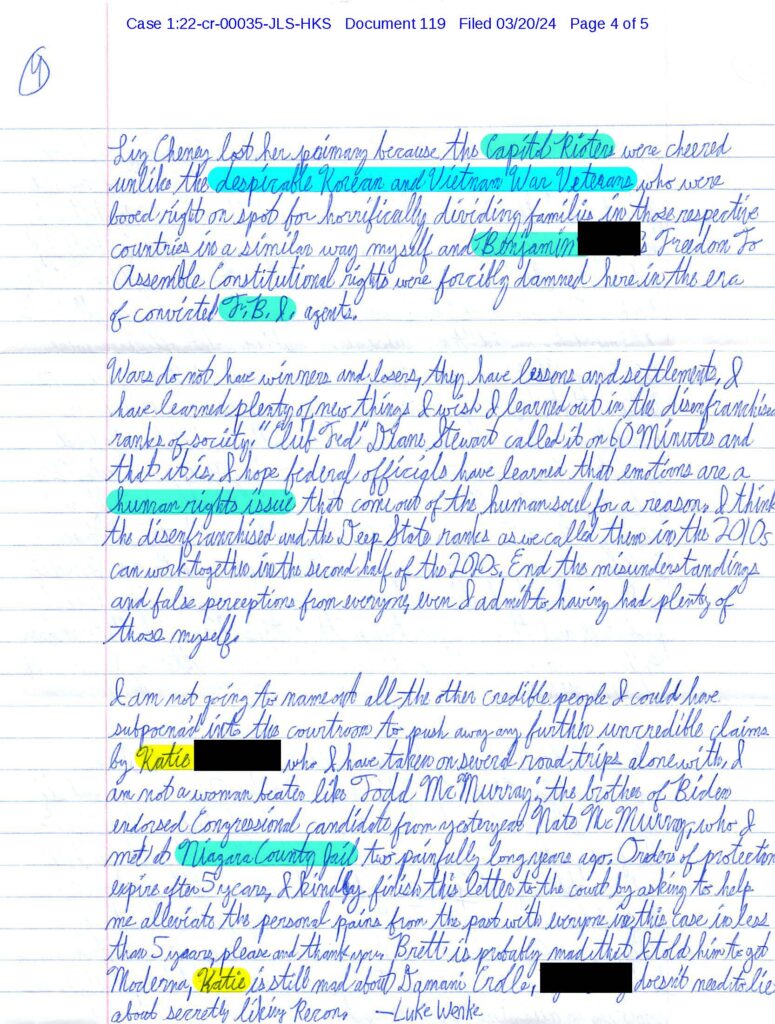 Case 1:22-cr-00035-JLS-HKS Document 119 Filed 03/20/24 Page 4 of 5
4
Liz Cheney lost her primary because the Capitol Rioters were cheered
unlike the despicable Korean and Vietnam War Veterans who were
booed right on spot for horrifically dividing families in those respective
countries in a similar way myself and Benjamin 's Freedon To
Assemble Constitutional rights were forcibly damned here in the era
of convicted F.B.I. agents.
Wars do not have winners and losers, they have lessons and settlements. I
have learned plenty of new things I wish I learned out in the disenfranchised
ranks of society. "Cluf Ted" Diane Stewart called it on 60 Minutes and
that it is. I hope federal officials have learned that emotions are a
human rights issue that come out of the human soul for a reason. I think
the disenfranchised and the Deep State ranks as we called them in the 2010s
can work together in the second half of the 2020s. End the misunderstandings
and false perceptions from everyone, even I admit to having had plenty of
those myself.
I am not going to name out all the other credible people I could have
subpoena'd into the courtroom to push away any further uncredible claims
by Katie who I have taken on several road trips alone with. I
am not a woman beater like Todd McMurray, the brother of Biden
endorsed Congressional candidate from yesteryear Nate McMurray, who I
met at Niagara County Jail two painfully long years ago. Orders of protection
expire after 5 years, I kindly finish this letter to the court by asking to help
me alleviate the personal pains from the past with everyone in this case in less
than 5 years, please and thank you. Brett is probably mad that I told him to get
Moderna, Katie is still mad about Damani , doesn't need to lie
about secretly liking . —Luke Wenke